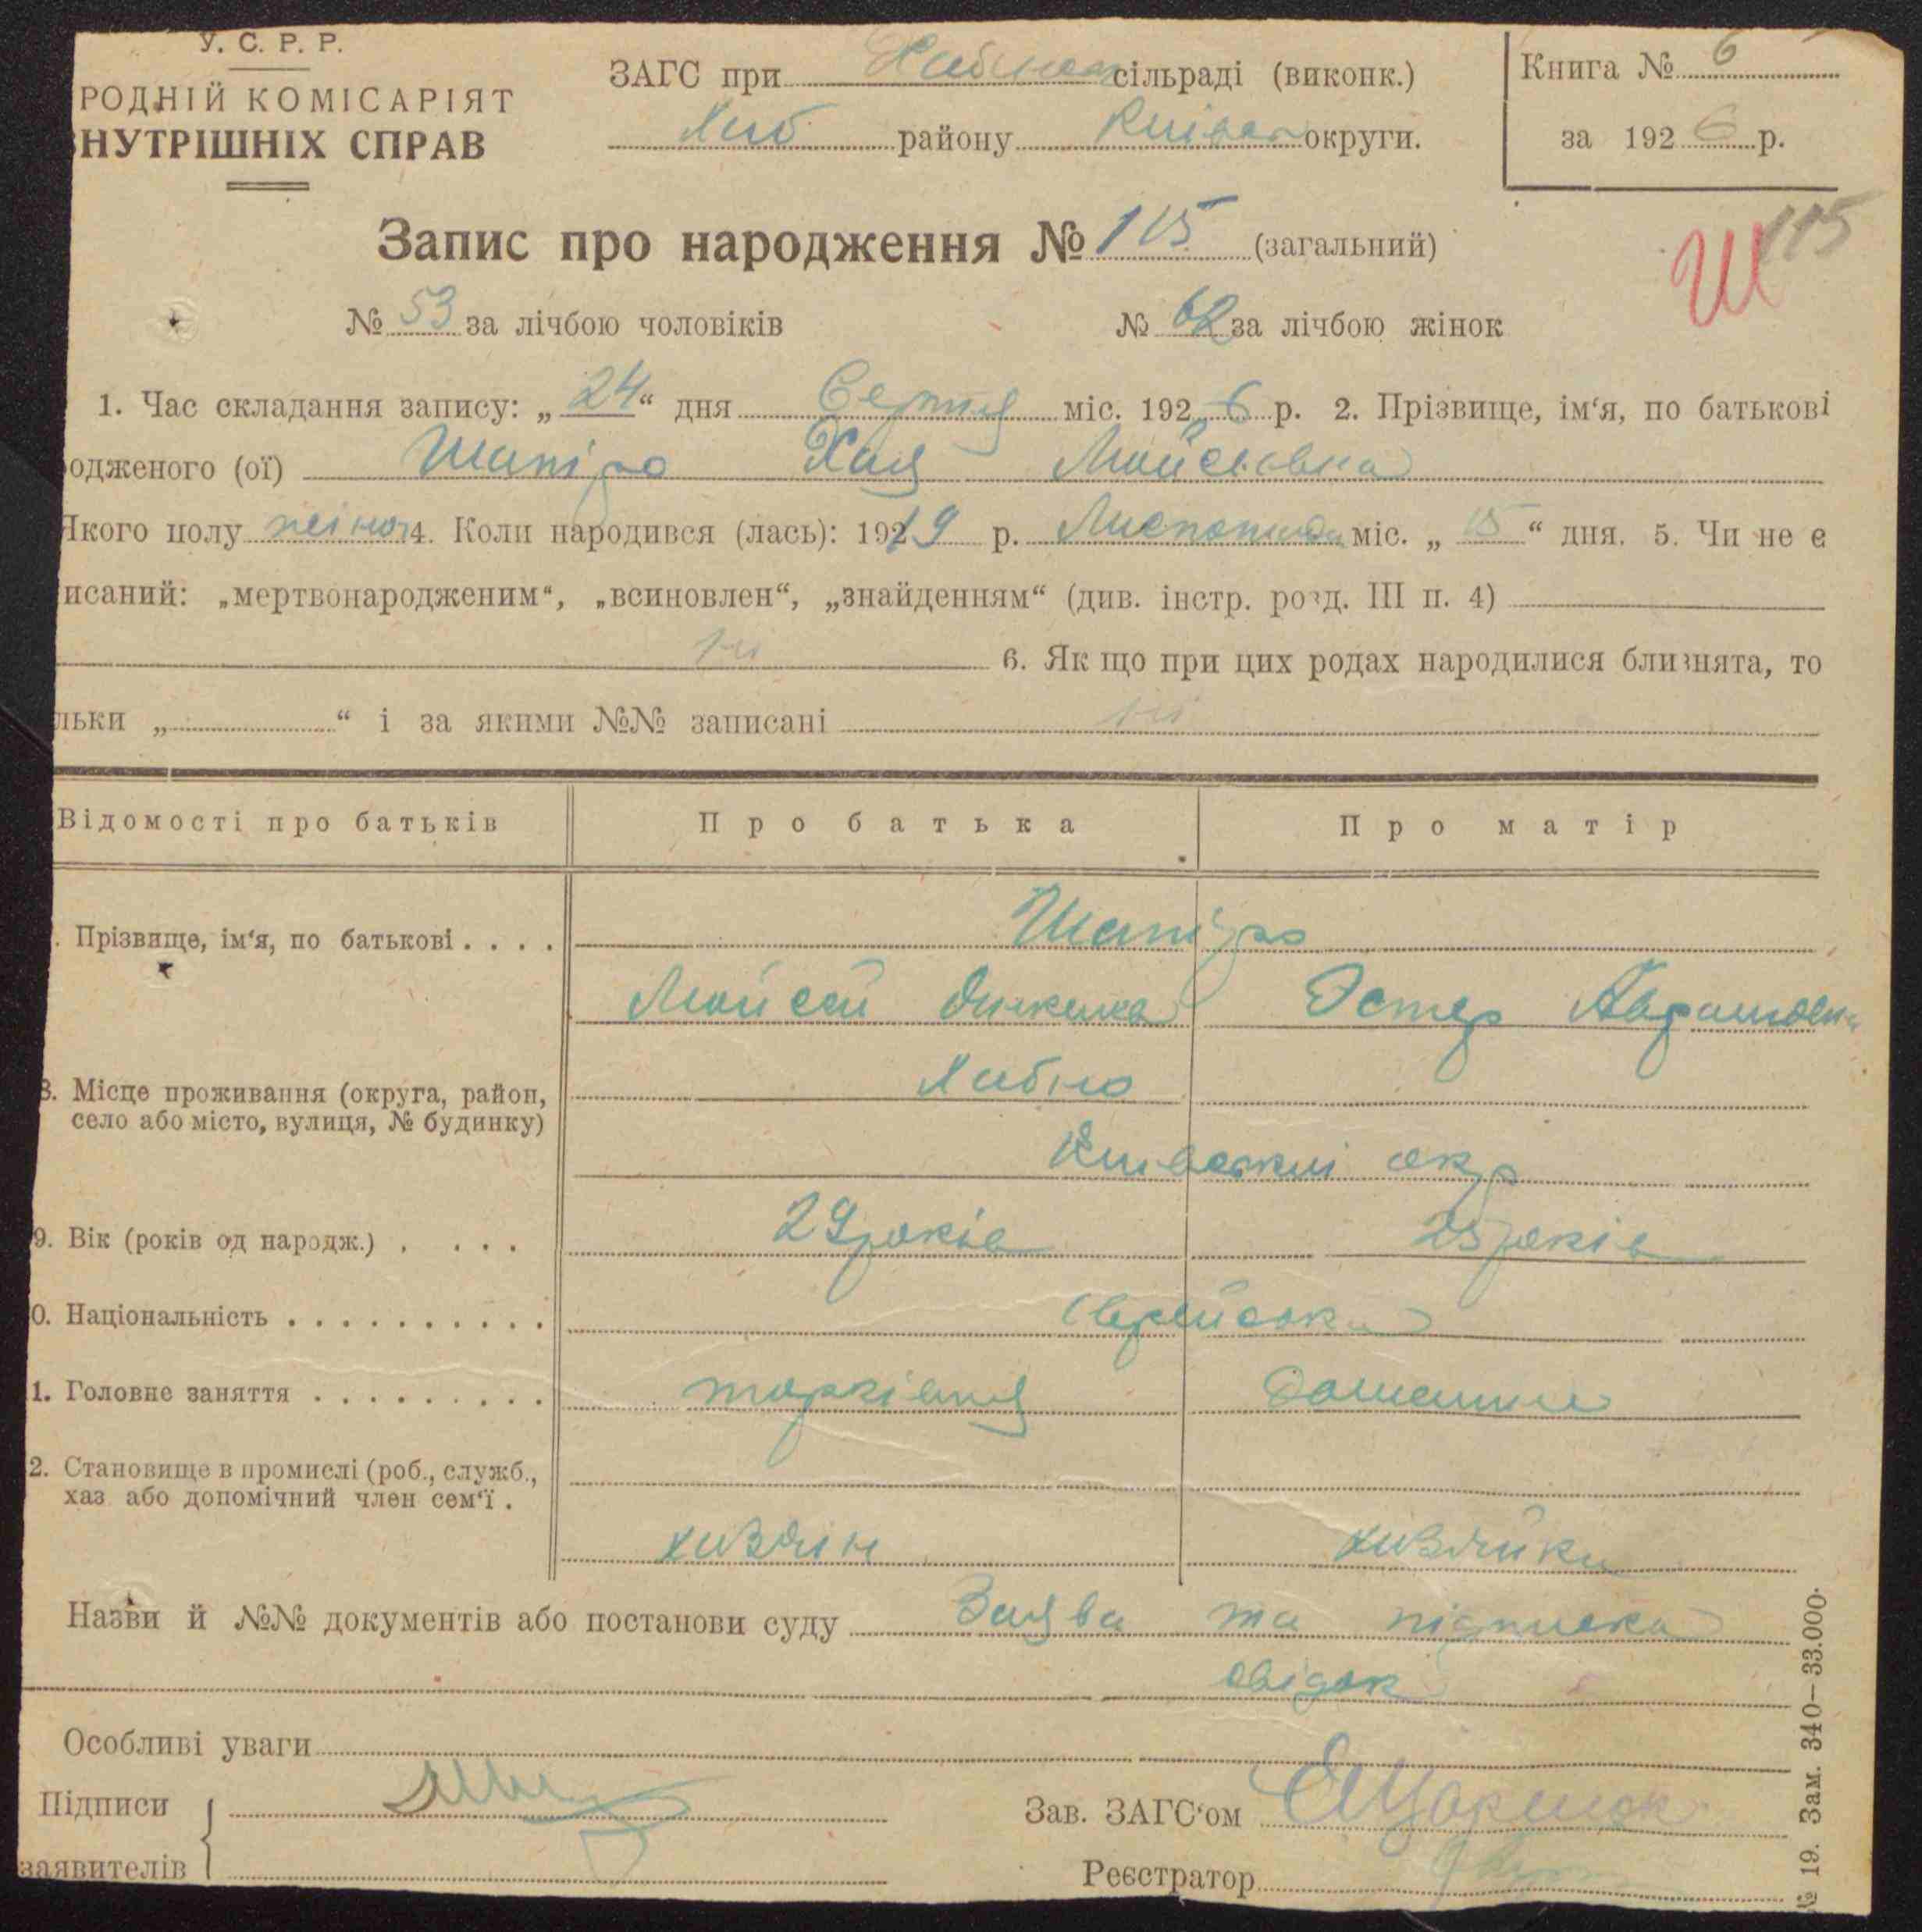 У. С. Р. Р.
РОДНІЙ КОМІСАРІЯТ
ВНУТРІШНІХ СПРАВ
ЗАГС при Хабенськ сільраді (виконк.)
Хаб району Київськ округи.
Книга № 6
за 192 6 р.
Запис про народження № 115 (загальний)
Ш 115
№ 53 за лічбою чоловіків № 62 за лічбою жінок
1. Час складання запису: „ 24 “ дня Серпня міс. 192 6 р. 2. Прізвище, ім‘я, по батькові
одженого (ої) Шапіро Хая Мойсеївна
Якого полу жіноч 4. Коли народився (лась): 1919 р. Листопада міс. „ 15 “ дня. 5. Чи не є
исаний: „мертвонародженим“, „всиновлен“, „знайденням“ (див. інстр. розд. III п. 4)
ні 6. Як що при цих родах народилися близнята, то
льки „ “ і за якими №№ записані ні
Відомості про батьків Про батька Про матір
. Прізвище, ім‘я, по батькові . . . . Шапіро
Мойсей Эстер Аврамовна
8. Місце проживання (округа, район, Хабно
село або місто, вулиця, № будинку)
Київської окр
9. Вік (років од народж.) . . . . 29 років 25 років
0. Національність . . . . . . . . . . Єврейська
1. Головне заняття . . . . . . . . . торгівля Домашнє
2. Становище в промислі (роб., служб.,
хаз або допомічний член сем‘ї .
хазяїн хазяйка
Назви й №№ документів або постанови суду Заява та підписка
свідок
Особливі уваги
Підписи
заявителів
Зав. ЗАГС‘ом
Реєстратор
№ 19. Зам. 340—33.000.